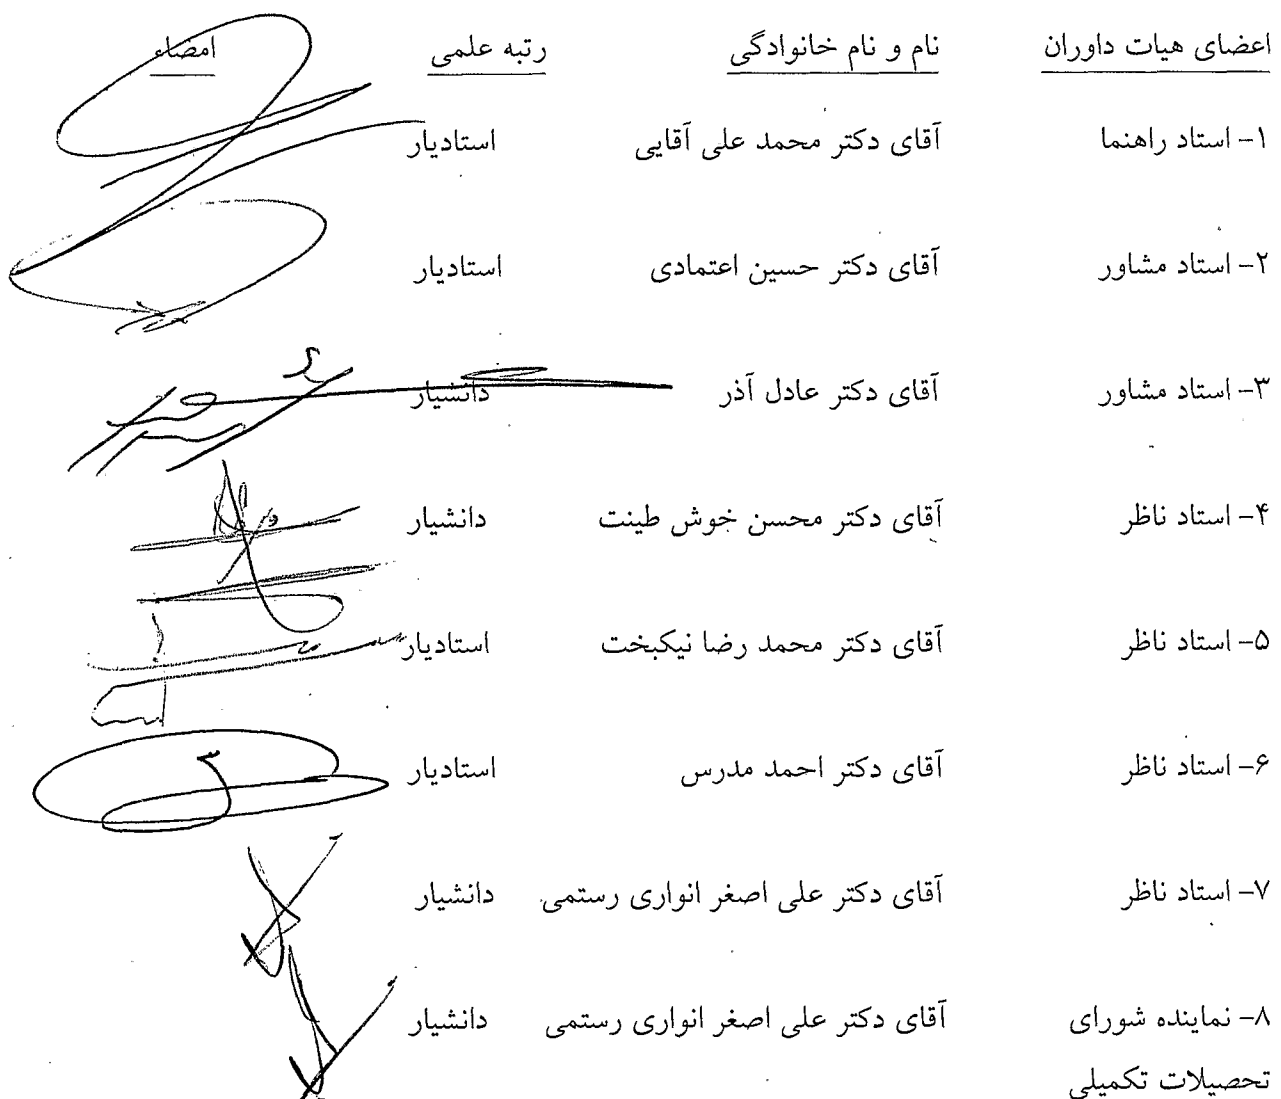 اعضای هیات داوران نام و نام خانوادگی رتبه علمی امضاء
۱- استاد راهنما آقای دکتر محمد علی آقایی استادیار
۲- استاد مشاور آقای دکتر حسین اعتمادی استادیار
۳- استاد مشاور آقای دکتر عادل آذر دانشیار
۴- استاد ناظر آقای دکتر محسن خوش طینت دانشیار
۵- استاد ناظر آقای دکتر محمد رضا نیکبخت استادیار
۶- استاد ناظر آقای دکتر احمد مدرس استادیار
۷- استاد ناظر آقای دکتر علی اصغر انواری رستمی دانشیار
۸- نماینده شورای آقای دکتر علی اصغر انواری رستمی دانشیار
تحصیلات تکمیلی